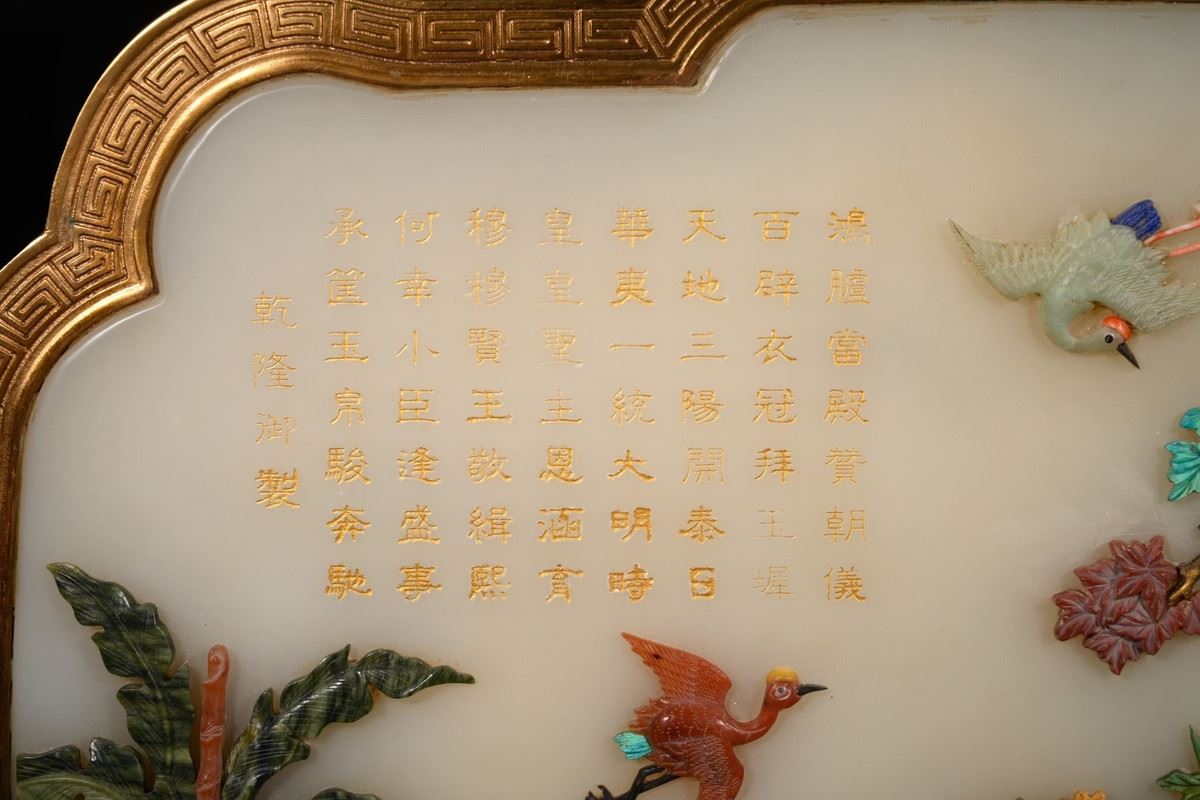 鴻臚當殿贊朝儀
百辟衣冠拜玉墀
天地三陽開泰日
華夷一統大明時
皇皇聖主恩涵育
穆穆賢王敬緝熙
何幸小臣逢盛事
承筐玉帛駿奔馳
乾隆御製